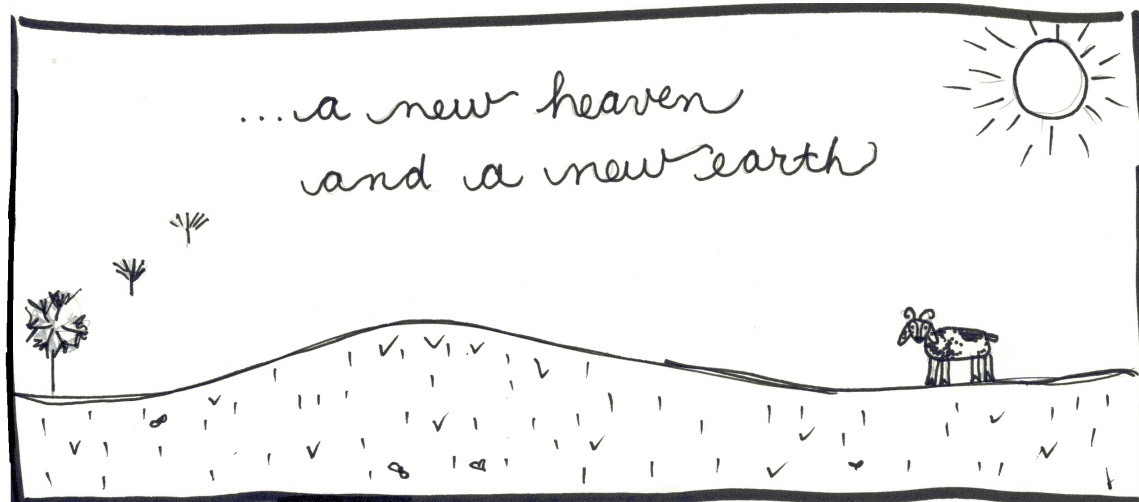 ...a new heaven
and a new earth